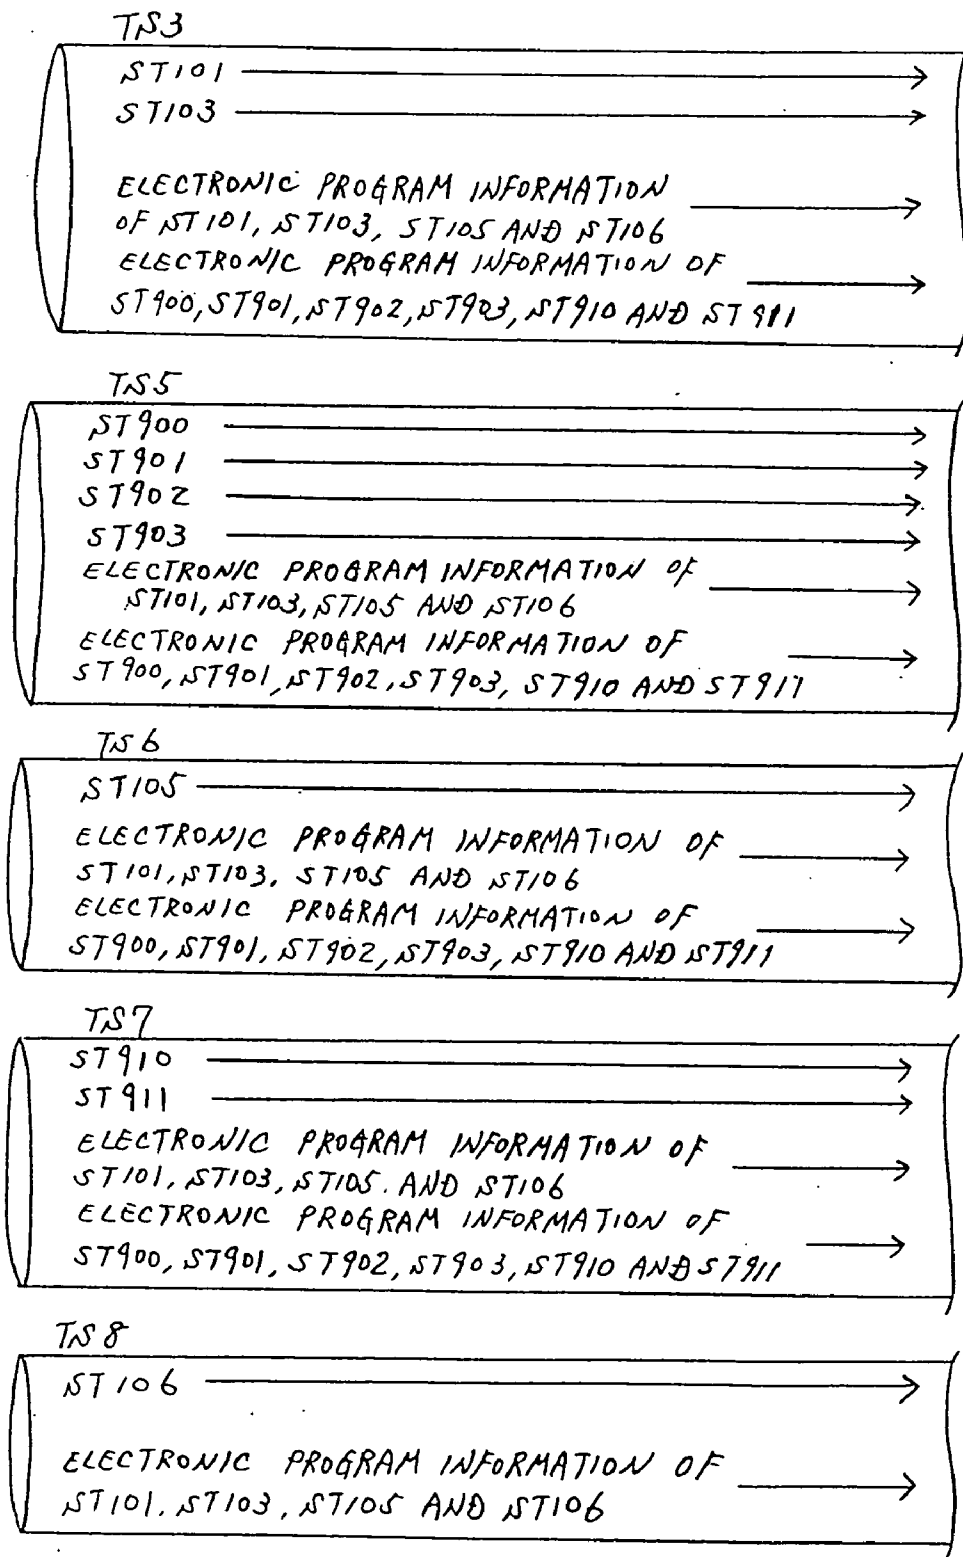 TS3
ST101
ST103
ELECTRONIC PROGRAM INFORMATION
OF ST101, ST103, ST105 AND ST106
ELECTRONIC PROGRAM INFORMATION OF
ST900, ST901, ST902, ST903, ST910 AND ST911
TS5
ST900
ST901
ST902
ST903
ELECTRONIC PROGRAM INFORMATION OF
ST101, ST103, ST105 AND ST106
ELECTRONIC PROGRAM INFORMATION OF
ST900, ST901, ST902, ST903, ST910 AND ST911
TS6
ST105
ELECTRONIC PROGRAM INFORMATION OF
ST101, ST103, ST105 AND ST106
ELECTRONIC PROGRAM INFORMATION OF
ST900, ST901, ST902, ST903, ST910 AND ST911
TS7
ST910
ST911
ELECTRONIC PROGRAM INFORMATION OF
ST101, ST103, ST105. AND ST106
ELECTRONIC PROGRAM INFORMATION OF
ST900, ST901, ST902, ST903, ST910 AND ST911
TS8
ST106
ELECTRONIC PROGRAM INFORMATION OF
ST101. ST103, ST105 AND ST106